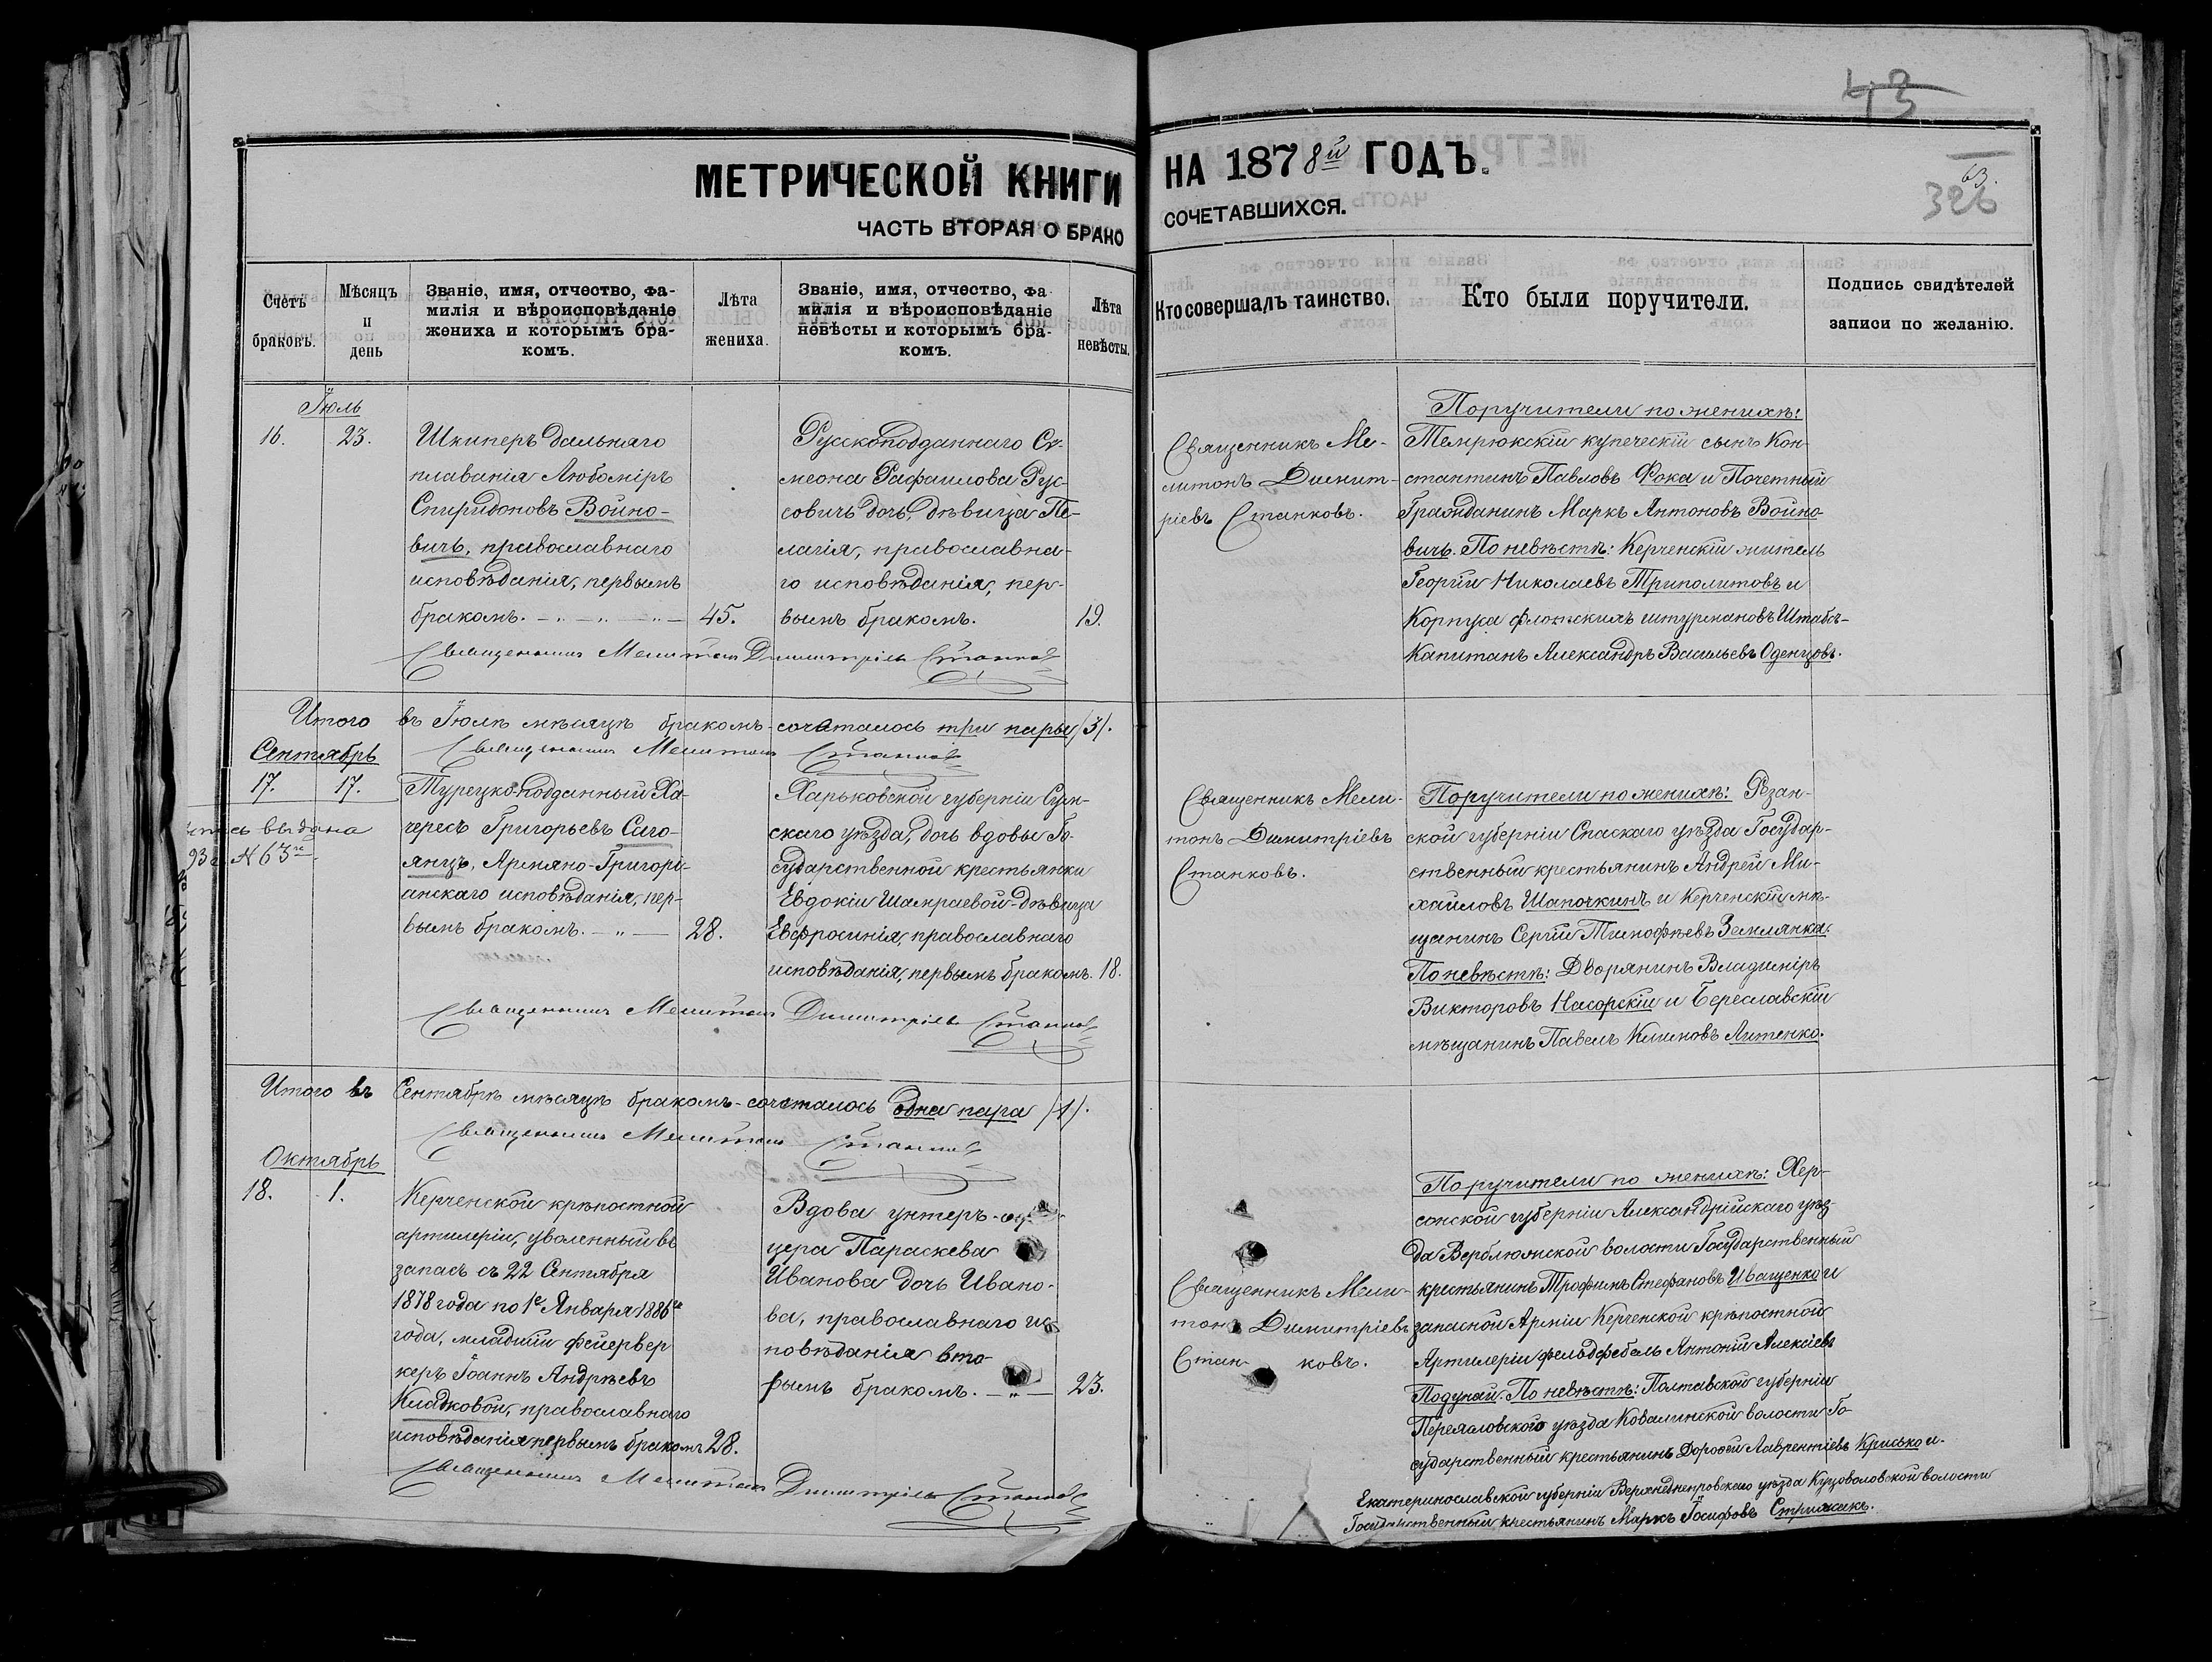 43
63.
326
МЕТРИЧЕСКОЙ КНИГИ НА 1878й ГОДЪ.
ЧАСТЬ ВТОРАЯ О БРАКОСОЧЕТАВШИХСЯ.
Счетъ браковъ.
Мѣсяцъ и день
Званіе, имя, отчество, фа-
милія и вѣроисповѣданіе
жениха и которымъ бра-
комъ.
Лѣта жениха.
Званіе, имя, отчество, фа
милія и вѣроисповѣданіе
невѣсты и которымъ бра-
комъ.
Лѣта невѣсты.
Кто совершалъ таинство.
Кто были поручители.
Подпись свидѣтелей
записи по желанію.
Іюль
16. 23.
Шкиперъ дальняго
плаванія Любоміръ
Спиридоновъ Войно-
вичъ, православнаго
исповѣданія, первымъ
бракомъ. 45.
Русскоподданнаго Си-
меона Рафаилова Рус-
совичъ дочь, дѣвица Пе-
лагія, православна-
го исповѣданія, пер-
вымъ бракомъ. 19.
Священникъ Мелитонъ Димитріевъ Станковъ
Священникъ Ме-
литонъ Димит-
ріевъ Станковъ.
Поручители по женихѣ:
Темрюкскій купеческій сынъ Кон-
стантинъ Павловъ Фока и Почетный
Гражданинъ Маркъ Антоновъ Войно-
вичъ. По невѣстѣ: Керченскій житель
Георгій Николаевъ Триполитовъ и
Корпуса флотскихъ штурмановъ Штабсъ-
Капитанъ Александръ Васильевъ Оденцовъ.
Итого въ Іюлѣ мѣсяцѣ бракомъ-сочеталось три пары /3/.
Священникъ Мелитонъ Станковъ
Сентябрь
17. 17.
выдана
93 г. № 63
Турецко-подданный Ха-
чересъ Григорьевъ Саго-
янцъ, Армяно-Григорі-
анскаго исповѣданія, пер-
вымъ бракомъ. 28.
Харьковской губерніи Сум-
скаго уѣзда, дочь вдовы Го-
сударственной крестьянки
Евдокіи Шамраевой-дѣвица
Евфросинія, православнаго
исповѣданія, первымъ бракомъ. 18.
Священникъ Мелитонъ Димитріевъ Станковъ
Священникъ Мели-
тонъ Димитріевъ
Станковъ.
Поручители по женихѣ: Рязан-
ской губерніи Спаскаго уѣзда Государ-
ственный крестьянинъ Андрей Ми-
хайловъ Шапочкинъ и Керченскій мѣ-
щанинъ Сергій Тимофѣевъ Землянка.
По невѣстѣ: Дворянинъ Владиміръ
Викторовъ Насорскій и Береславскій
мѣщанинъ Павелъ Климовъ Литенко.
Итого въ Сентябрѣ мѣсяцѣ бракомъ-сочеталось одна пара /1/.
Священникъ Мелитонъ Станковъ
Октябрь
18. 1.
Керченской крѣпостной
артилеріи, уволенный въ
запасъ съ 22 Сентября
1878 года по 1е Января 1886го
года, младшій фейервер
керъ Іоаннъ Андрѣевъ
Кладковой, православнаго
исповѣданія первымъ бракомъ 28.
Вдова унтеръ-
цера Параскева
Иванова дочь Ивано-
ва, православнаго ис
повѣданія вто-
рымъ бракомъ. 23.
Священникъ Мелитонъ Димитріевъ Станковъ
Священникъ Мели-
тонъ Димитріевъ
Станковъ.
Поручители по женихѣ: Хер-
сонской губерніи Александрійскаго уѣз-
да Верблюжской волости Государственный
крестьянинъ Трофимъ Стефановъ Иващенко и
запасной Арміи Керченской крѣпостной
Артилеріи фельдфебель Антоній Алексіевъ
Подунай. По невѣстѣ: Полтавской губерніи
Переяловского уѣзда Ковалинской волости Го-
сударственный крестьянинъ Дорофей Лаврентіевъ Крисько и.
Екатеринославской губерніи Верхнеднепровскаго уѣзда Куцоволовской волости
Государственный крестьянинъ Маркъ Іосифовъ Стрижакъ.